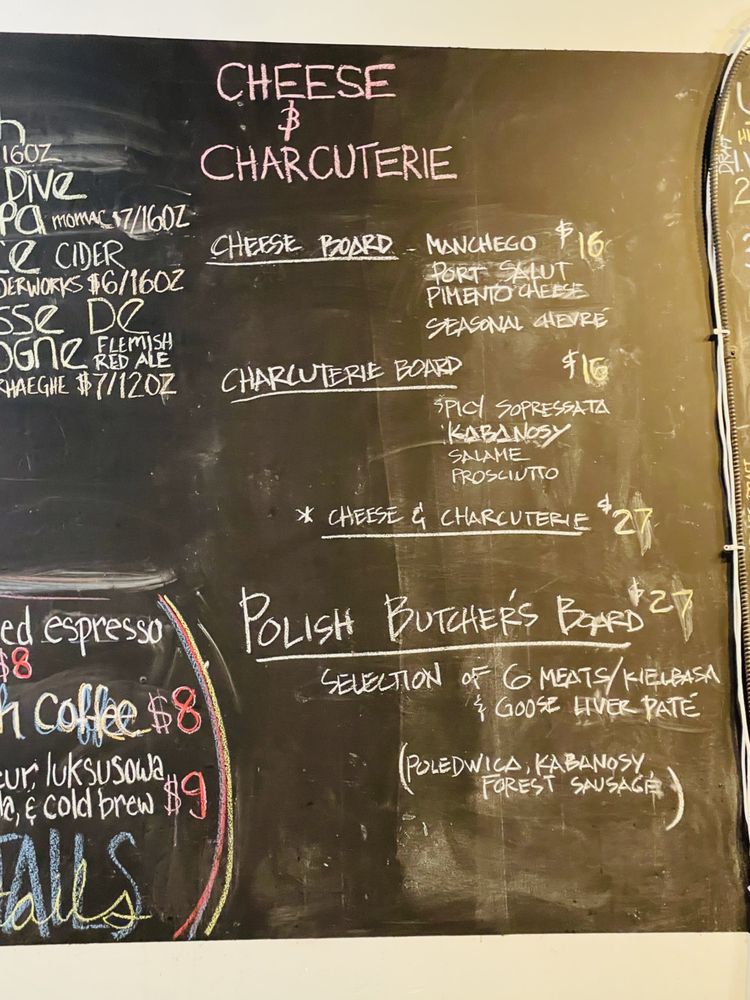 CHEESE
&
CHARCUTERIE
CHEESE BOARD - MANCHEGO $16
PORT SALUT
PIMENTO CHEESE
SEASONAL CHEVRE
CHARCUTERIE BOARD $16
SPICY SOPRESSATA
KABANOSY
SALAME
PROSCIUTTO
* CHEESE & CHARCUTERIE $27
POLISH BUTCHER'S BOARD $27
SELECTION OF 6 MEATS/KIELBASA
& GOOSE LIVER PATÉ
(POLEDWICA, KABANOSY
FOREST SAUSAGE)
16OZ
DIVE
MOMAC $7/16OZ
CIDER
DERWORKS $6/16OZ
SSE DE
OGNE FLEMISH
RED ALE
RHAEGHE $7/12OZ
ed espresso
$8
h coffee $8
eur, luksusowa
a, & cold brew $9
TAILS
tails
DRAFT